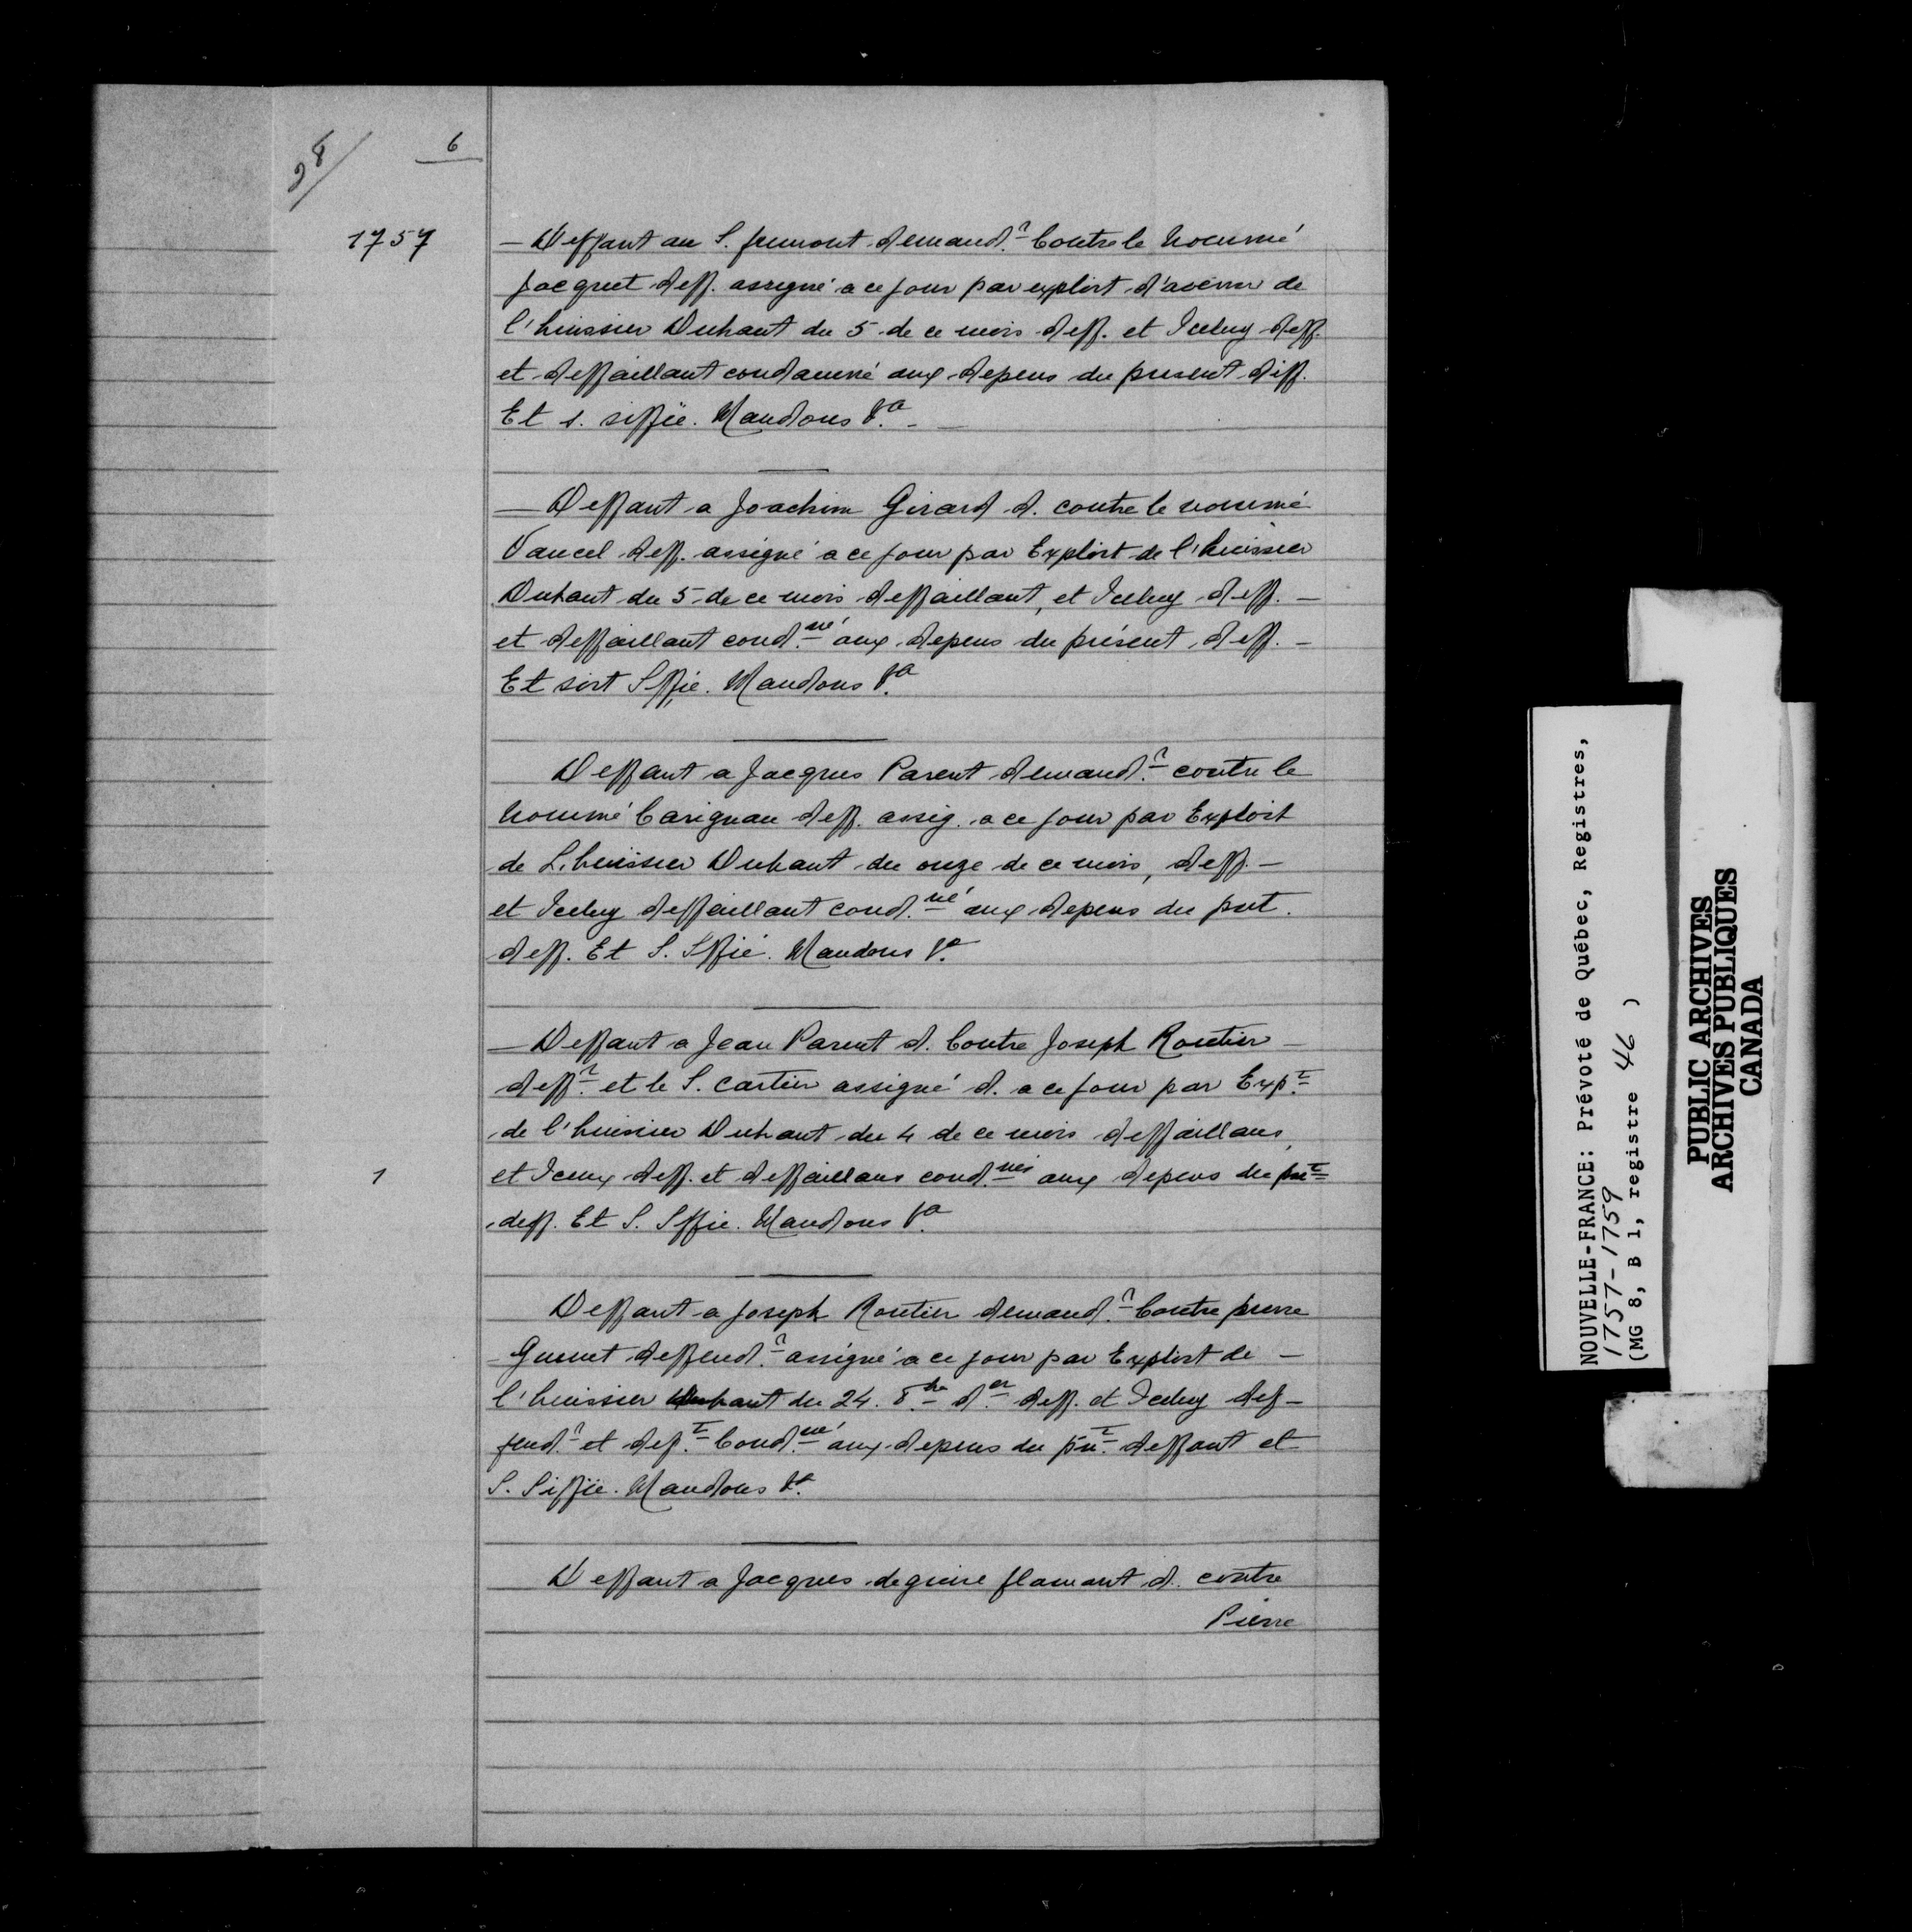 98/
6
1757
— Deffaut au S. fremont demand.r Contre le nommé
Jacquet deff. assigné a ce jour par exploit d'avenir de
l'huissier Duhaut du 5 de ce mois deff. et Iceluy deff.
et deffaillant condamné aux depens du present deff.
Et s. siffié. Mandons &.a —
— Deffaut a Joachim Girard d. contre le nommé
Vancel deff. assigné a ce jour par Exploit de l'huissier
Duhaut du 5 de ce mois deffaillant, et Iceluy deff. —
et deffaillant cond.né aux depens du présent deff. —
Et soit Sffié. Mandons &.a
Deffaut a Jacques Parent demand.r contre le
nommé Carignan deff. assig. a ce jour par Exploit
de L'huissier Duhaut du onze de ce mois, deff. —
et Iceluy deffaillant cond.né aux depens du pnt.
deff. Et S. Sffié. Mandons &.a
— Deffaut a Jean Parent d. Contre Joseph Routier —
deff.r et le S. Cartier assigné d. a ce jour par Exp.t
de l'huissier Duhaut du 4 de ce mois deffaillans,
1
et Iceux deff. et deffaillans cond.nés aux depens du pnt
deff. Et S. Sffié. Mandons &.a
Deffaut a Joseph Routier demand.r Contre pierre
deffend.r assigné a ce jour par Exploit de —
l'huissier Duhaut du 24. 8.bre d.er deff. et Iceluy def-
fend.r et def.t Cond.né aux depens du pn.t deffaut et
S. Siffié. Mandons &.a
Deffaut a Jacques deguise flamant d. contre
Pierre
NOUVELLE-FRANCE: Prévoté de Québec, Registres,
1757-1759
(MG 8, B 1, registre 46 )
PUBLIC ARCHIVES
ARCHIVES PUBLIQUES
CANADA